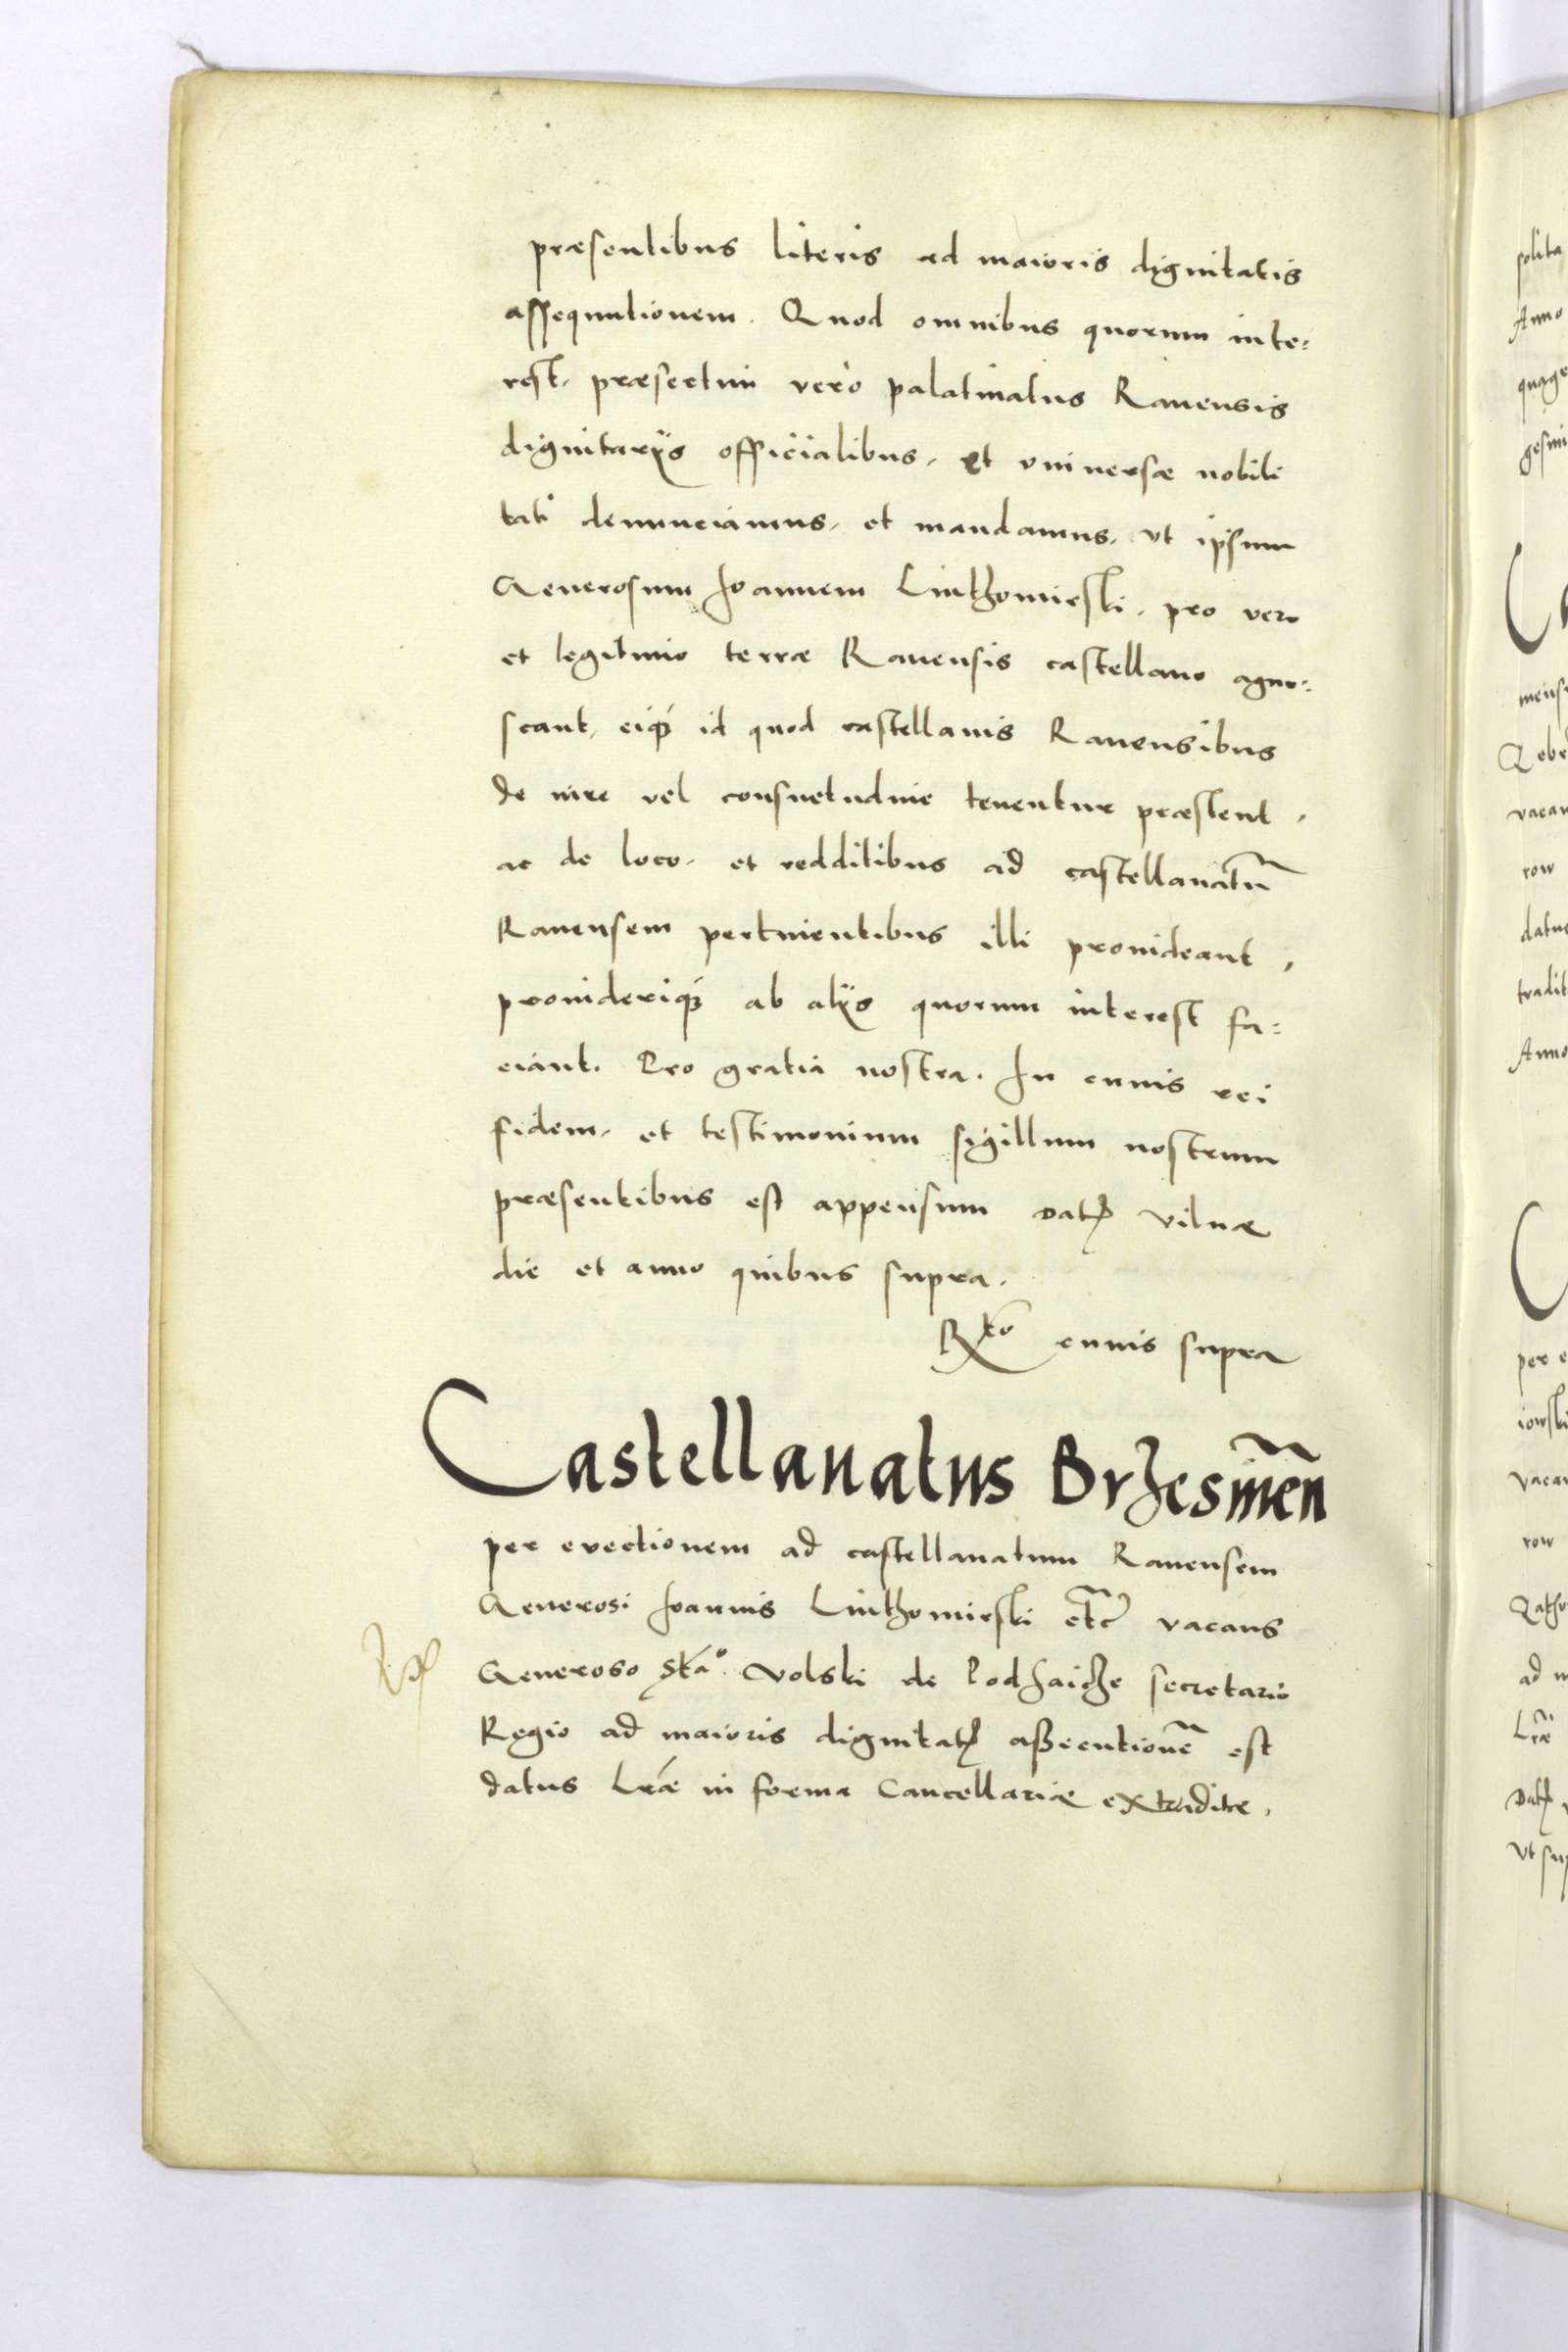 præsentibus literis ad maioris dignitatis
assequutionem. Quod omnibus quorum inte:
rest, præsertim vero palatinatus Rauensis
dignitarijs officialibus, et vniuersæ nobili
tati denunciamus, et mandamus, vt ipsum
Generosum Joannem Liuthomirski, pro vero
et legitimo terræ Rauensis castellano agno:
scant, eiq3 id quod castellanis Rauensibus
de iure vel consuetudine tenentur præstent,
ac de loco, et redditibus ad castellanatū
Rauensem pertinentibus illi prouideant,
prouideriq3 ab alijs quorum interest fa:
ciant. Pro gratia nostra. In cuius rei
fidem, et testimonium sigillum nostrum
præsentibus est appensum Datꝭ Vilnæ
die et anno quibus supra.
Rto cuius supra
Castellanatus Brzesineñ
per euectionem ad castellanatum Rauensem
Generosi Joannis Liuthomirski etc̃ vacans
Generoso Sta° Volski de Podhaicze secretario
Regio ad maioris dignitatꝭ assecutionẽ est
datus Lræ in forma Cancellariæ extraditæ.
solita
Anno
quage
gesmi
mens
vacan
row
datus
tradit
Anno
per e
iowski
vacan
row
ad m
Lræ
Datꝭ
Vt sup